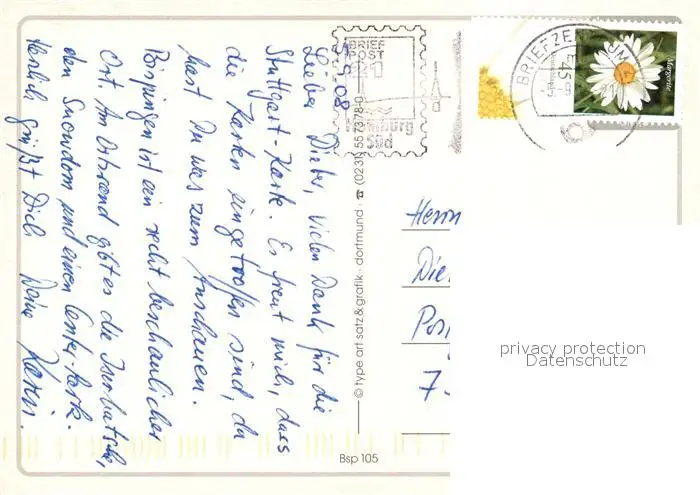 3.9.08
Lieber Dieter, vielen Dank für die
Stuttgart-Karte. Es freut mich, dass
die Karten eingetroffen sind, da
hast Du was zum Anschauen.
Bispingen ist ein recht beschaulicher
Ort. Am Ortsrand gibt es die
den Snowdom und einen Center-Park.
Herlich grüßt Dich Deine Karin.
BRIEF
POST
Süd
BRIEFZENTRUM
45
Margerite
© type art satz & grafik · dortmund · ☎ (0231) 557378-0
Herrn
Die
Pos
7
privacy protection
Datenschutz
Bsp 105